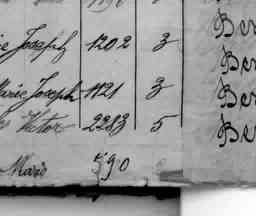 Joseph 1202 3 Ber
Ber
Marie Joseph 1121 3 Ber
Victor 2283 5 Ber
Marie 590